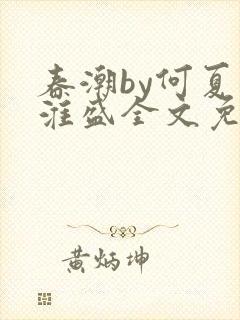 春潮by何夏
淮盛全文免
黄炳坤